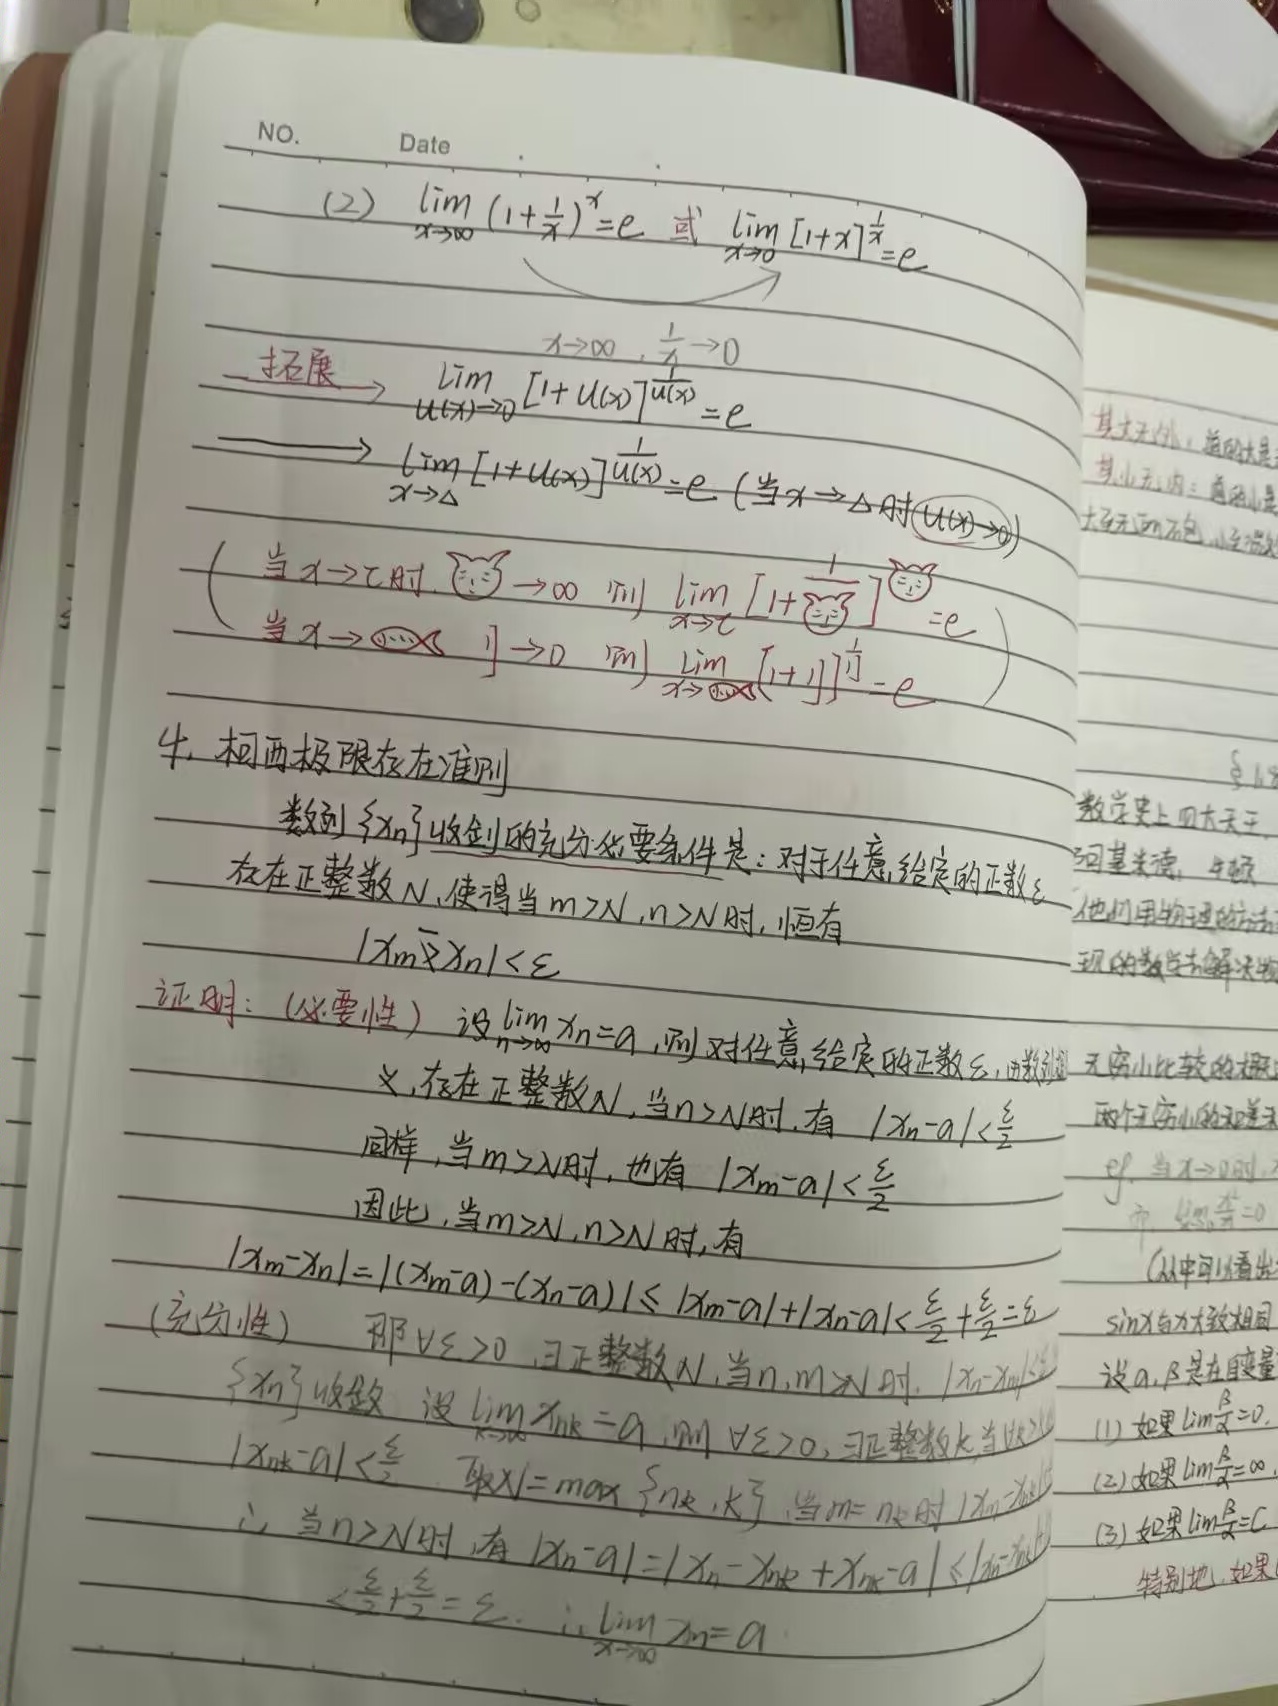 NO. Date
(2) lim x→∞ (1+1/x)^x=e 或 lim x→0 [1+x]^(1/x)=e
x→∞, 1/x→0
拓展→ lim u(x)→0 [1+u(x)]^(1/u(x))=e
⟹ lim x→Δ [1+u(x)]^(1/u(x))=e (当x→Δ时u(x)→0)
当x→ 时 →∞ 则 lim [1+1/ ] =e
当x→ →0 则 lim x→ [1+ ] =e
4. 柯西极限存在准则
数列{xn}收敛的充分必要条件是:对于任意给定的正数ε
存在正整数N,使得当m>N,n>N时,恒有
|xm-xn|<ε
证明:(必要性) 设lim n→∞ xn=a,则对任意给定的正数ε,由数列
义,存在正整数N,当n>N时,有 |xn-a|<ε/2
同样,当m>N时,也有 |xm-a|<ε/2
因此,当m>N,n>N时,有
|xm-xn|=|(xm-a)-(xn-a)|≤|xm-a|+|xn-a|<ε/2+ε/2=ε
(充分性) 即∀ε>0,∃正整数N,当n,m>N时,|xn-xm|<
{xn}收敛 设lim k→∞ xnk=a,则∀ε>0,∃正整数k,当
|xnk-a|<ε/2 取N=max{nk,k},当m=nk时|xm-xnk|
∴当n>N时,有|xn-a|=|xn-xnk+xnk-a|≤|xn-xnk|
<ε/2+ε/2=ε. ∴lim x→∞ xn=a
其大无外:道的大是
其小无内:道的小是
数学史上四大天王
阿基米德,牛顿
他们用物理的方法
现的数学去解决物
无穷小比较的概
两个无穷小的和差
eg. 当x→0时,
=0
(从中可以看出
sinx与x大致相同
设α,β是在自变量
(1) 如果lim β/α=0,
(2) 如果lim β/α=∞,
(3) 如果lim β/α=C
特别地,如果